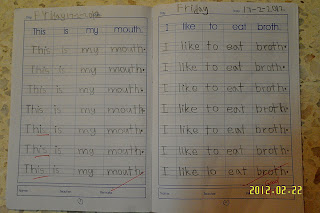 Friday
This is my mouth.
This is my mouth.
This is my mouth.
This is my mouth.
This is my mouth.
This is my mouth.
This is my mouth.
This is my mouth.
Friday
I like to eat broth.
I like to eat broth.
I like to eat broth.
I like to eat broth.
I like to eat broth.
I like to eat broth.
I like to eat broth.
I like to eat broth.
2012-02-22